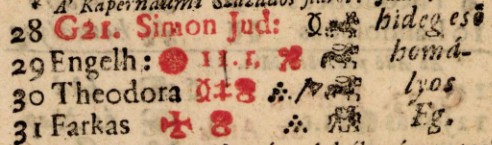 A' Kapernaumi Százados
28 G21. Simon Jud: hideg eső
29 Engelh: 11.1. homá-
30 Theodora lyos
31 Farkas Eg.